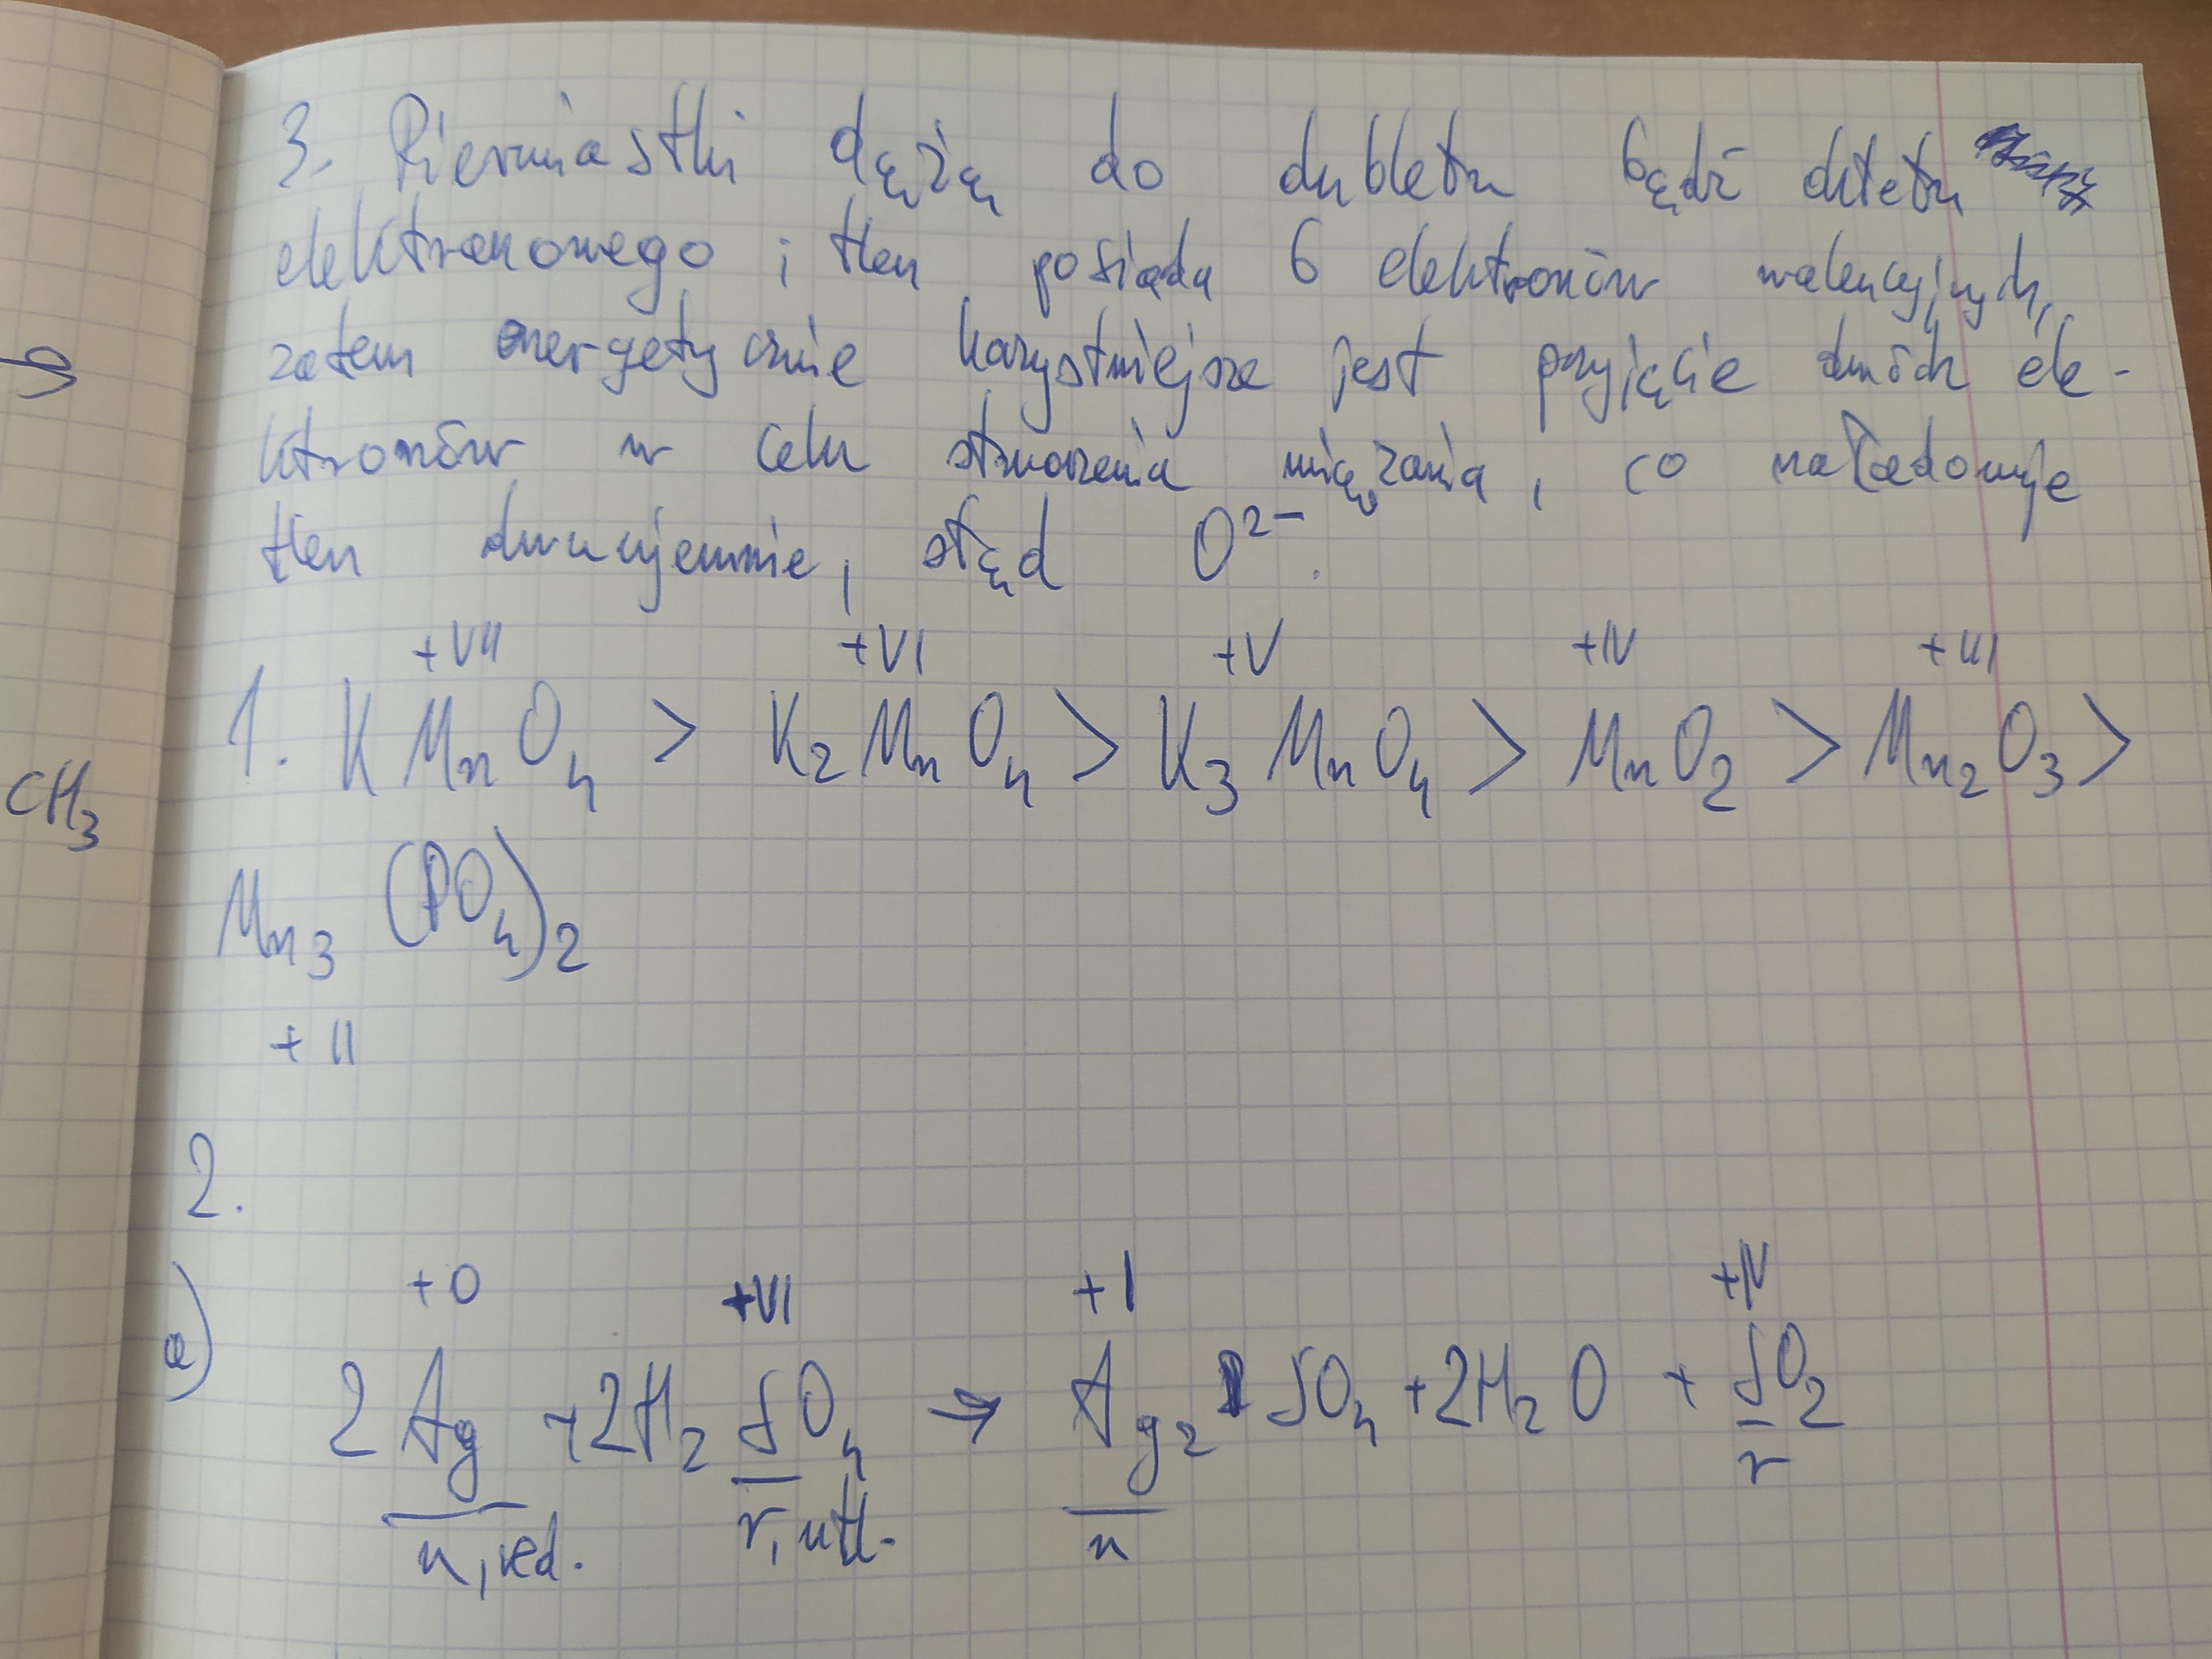 3. Pierwiastki dążą do dubletu bądź oktetu
elektronowego i tlen posiada 6 elektronów walencyjnych,
zatem energetycznie korzystniejsze jest przyjęcie dwóch ele-
ktronów w celu stworzenia wiązania, co naładowuje
tlen dwuujemnie, stąd O²⁻.
+VII +VI +V +IV +III
1. KMnO₄ > K₂MnO₄ > K₃MnO₄ > MnO₂ > Mn₂O₃ >
CH₃
Mn₃(PO₄)₂
+II
2.
+0 +VI +I +IV
a) 2Ag + 2H₂SO₄ → Ag₂SO₄ + 2H₂O + SO₂
u, red. r, utl. u r